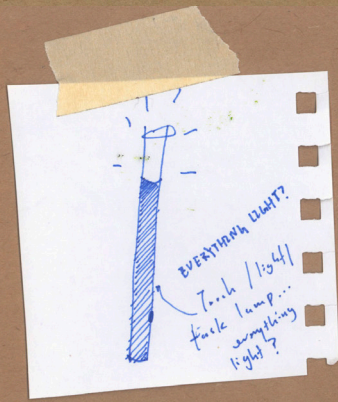 EVERYTHING LIGHT?
Torch / light /
lamp...
everything
light?